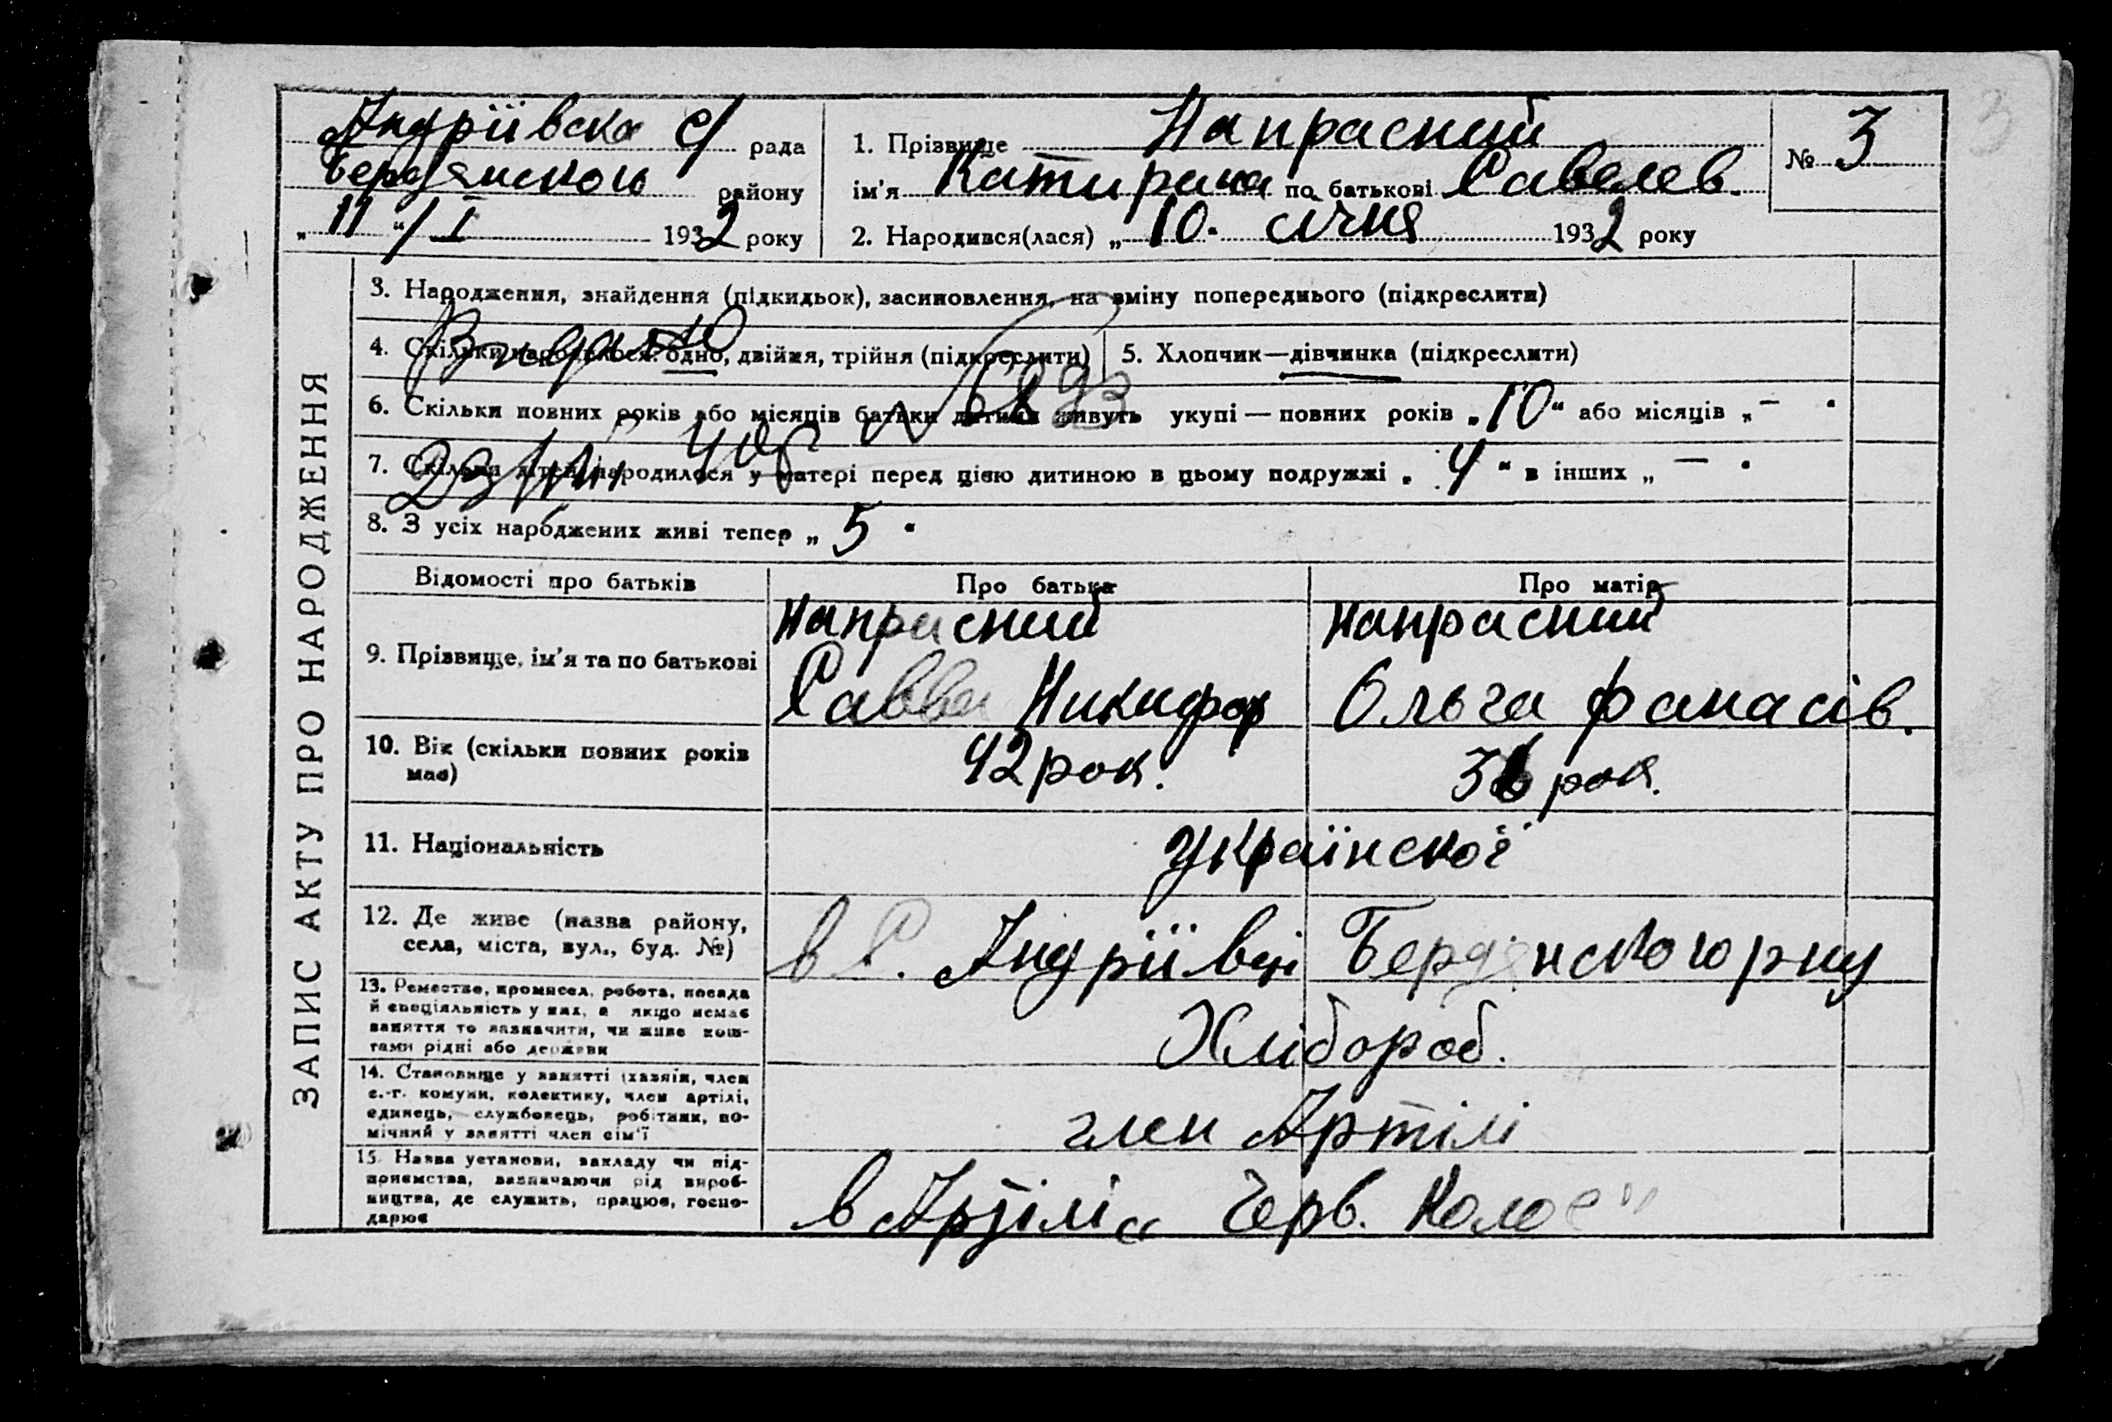 Андріївска с/ рада
Бердянського району
„ 11 “ / I 1932 року
1. Прізвище Напрасний
ім'я Катирина по батькові Савелев.
2. Народився(лася) „ 10. січня 1932 року
№ 3
3
ЗАПИС АКТУ ПРО НАРОДЖЕННЯ
3. Народження, знайдення (підкидьок), засиновлення, на зміну попереднього (підкреслити)
4. Скільки народилося: одно, двійня, трійня (підкреслити)
5. Хлопчик—дівчинка (підкреслити)
6. Скільки повних років або місяців батьки дитини живуть укупі — повних років „ 10 “ або місяців „ — “
7. Скільки дітей народилося у матері перед цією дитиною в цьому подружжі „ 4 “ в інших „ — “
8. З усіх народжених живі тепер „ 5 “
Відомості про батьків
Про батька
Про матір
9. Прізвище, ім'я та по батькові
Напрасний
Савва Никифор
Напрасний
Ольга Фанасів.
10. Вік (скільки повних років має)
42 рок.
36 рок.
11. Національність
Українскої
12. Де живе (назва району,
села, міста, вул., буд. №)
в С. Андріївці Бердянского рну
13. Ремество, промисел, робота, посада
й спеціяльність у них, а якщо немає
заняття то зазначити, чи живе кош-
тами рідні або держави
Хлібороб.
14. Становище у занятті (хазяїн, член
с.-г. комуни, колективу, член артілі,
одинець, службовець, робітник, по-
мічний у занятті член сім'ї
член Артілі
15. Назва установи, закладу чи під-
приємства, зазначаючи рід вироб-
ництва, де служить, працює, госпо-
дарює
в Артілі „ Черв. Колос "